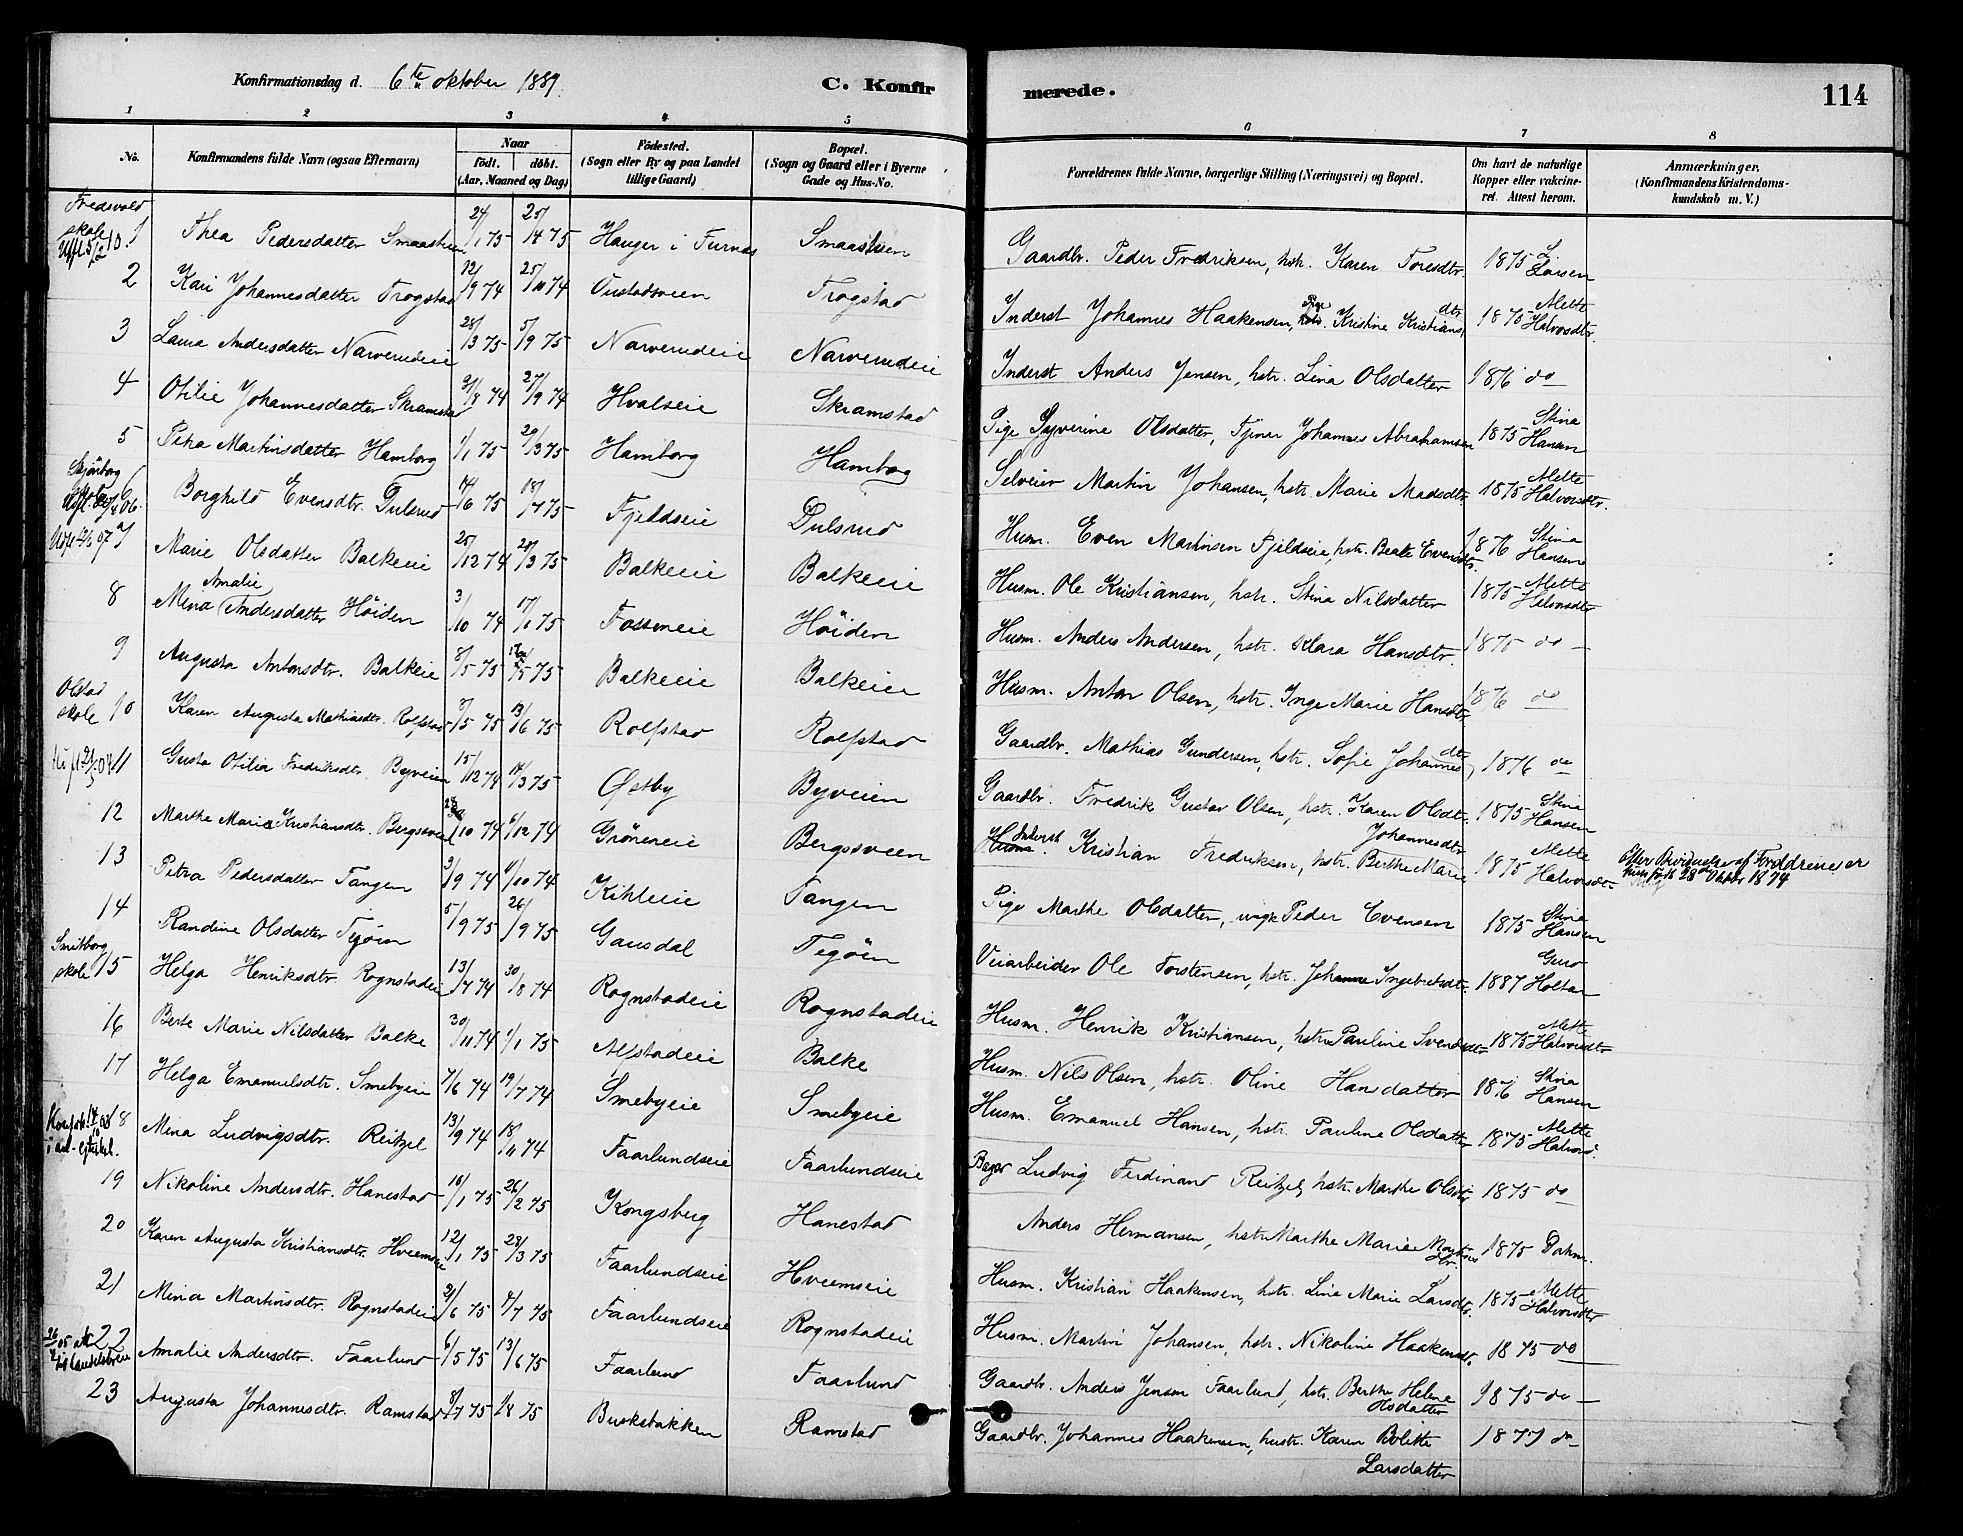 Konfirmationsdag d. 6te oktober 1889.
C. Konfirmerede.
114
1 2 3 4 5 6 7 8
No.
Konfirmandens fulde Navn (ogsaa Efternavn)
Naar
födt. döbt.
(Aar, Maaned og Dag)
Födested.
(Sogn eller By og paa Landet
tillige Gaard)
Bopæl.
(Sogn og Gaard eller i Byerne
Gade og Hus-No.
Forældrenes fulde Navne, borgerlige Stilling (Næringsvei) og Bopæl.
Om havt de naturlige
Kopper eller vakcine-
ret. Attest herom.
Anmærkninger.
(Konfirmandens Kristendoms-
kundskab m. V.)
skole
1 Thea Pedersdatter Smaastuen 24/1 75 25/4 75 Hauger i Furnæs Smaastuen Gaardbr. Peder Fredriksen, hstr. Karen Toresdtr. 1875 L. Larsen
2 Kari Johannesdatter Trogstad 12/9 74 25/10 74 Oustadsveen Trogstad Inderst Johannes Haakensen, Pige Kristine Kristiansdtr. 1875 Mette Halvorsdtr.
3 Laura Andersdatter Narverudeie 28/3 75 5/9 75 Narverudeie Narverudeie Inderst Anders Jensen, hstr. Lina Olsdatter 1876 do
4 Otilie Johannesdatter Skramstad 3/8 74 27/9 74 Hvalseie Skramstad Pige Syverine Olsdatter, Tjener Johannes Abrahamsen 1875 Stina Hansen
5 Petra Martinsdatter Hamborg 1/1 75 29/3 75 Hamborg Hamborg Selveier Martin Johansen, hstr. Marie Madsdtr. 1875 Mette Halvorsdtr.
6 Borghild Evensdtr. Dulsrud 14/6 75 18/7 75 Fjeldseie Dulsrud Husm. Even Martinsen Fjeldseie, hstr. Beate Evensdtr. 1876 Stina Hansen
7 Marie Olsdatter Balkeeie 25/12 74 29/3 75 Balkeeie Balkeeie Husm. Ole Kristiansen, hstr. Stina Nilsdatter 1875 Mette Halvorsdtr
8 Mina Amalie Andersdatter Höiden 3/10 74 17/1 75 Fosseneie Höiden Husm. Anders Andersen, hstr. Klara Hansdtr. 1875 do
9 Augusta Antonsdtr. Balkeie 8/5 75 Balkeeie Balkeeie Husm. Anton Olsen, hstr. Inge Marie Hansdtr. 1876 do
Olstad
skole
10 Karen Augusta Mathiasdtr. Rolfstad 3/5 75 13/6 75 Rolfstad Rolfstad Gaardbr. Mathias Gundersen, hstr. Sofie Johannesdtr. 1876 do
11 Gusta Otilia Fredriksdtr. Byveien 15/12 74 14/3 75 Østby Byveien Gaardbr. Fredrik Gustav Olsen, hstr. Karen Olsdtr. 1875 Stina Hansen
12 Marthe Marie Kristiansdtr. Bergsveen 28/10 74 6/12 74 Gröneneie Bergsveen Inderst Kristian Fredriksen, hstr. Berthe Marie Johannesdtr 1875 Mette Halvorsdtr. Efter Bevidnelse af Forældrene er hun født 28de Oktbr 1874
13 Petra Pedersdatter Tangen 3/9 74 4/10 74 Kihleeie Tangen Pige Marthe Olsdatter, ungk. Peder Evensen 1875 Stina Hansen
14 Randine Olsdatter Tegöen 5/9 75 26/9 75 Gausdal Tegöen Veiarbeider Ole Torstensen, hstr. Johanne Ingebretsdtr. 1887 Guro Holtan
Smitborg
skole
15 Helga Henriksdtr. Rognstadeie 13/7 74 30/8 74 Rognstadeie Rognstadeie Husm. Henrik Kristiansen, hstr. Pauline Svendsdtr 1875 Mette Halvorsdtr
16 Berte Marie Nilsdatter Balke 30/11 74 1/1 75 Alfstadeie Balke Husm. Nils Olsen, hstr. Oline Hansdatter 1876 Stina Hansen
17 Helga Emanuelsdtr. Smebyeie 7/6 74 19/7 74 Smebyeie Smebyeie Husm. Emanuel Hansen, hstr. Pauline Olsdatter 1875 Mette Halvorsd.
18 Mina Ludvigsdtr. Reitzel 13/9 74 18/11 74 Faarlundseie Faarlundseie Bager Ludvig Ferdinand Reitzel, hstr. Marthe Olsdtr. 1875 do
19 Nikoline Andersdtr. Hanestad 16/1 75 26/2 75 Kongsberg Hanestad Anders Hermansen, hstr. Marthe Marie Martinsdtr. 1875 Dahm.
20 Karen Augusta Kristiansdtr. Hveemseie 12/1 75 28/3 75 Faarlundseie Hveemseie Husm. Kristian Haakensen, hstr. Lina Marie Larsdtr. 1875 Mette Halvorsdtr
21 Mina Martinsdtr. Rognstadeie 21/6 75 4/7 75 Faarlundseie Rognstadeie Husm. Martin Johansen, hstr. Nikoline Haakensdtr. 1875 do
22 Amalie Andersdtr. Faarlund 6/5 75 13/6 75 Faarlund Faarlund Gaardbr. Anders Jensen Faarlund, hstr. Berthe Helene Olsdatter 1875 do
23 Augusta Johannesdtr. Ramstad 8/7 75 1/8 75 Buskebakken Ramstad Gaardbr. Johannes Haakensen, hustr. Karen Bolette Larsdatter 1877 do